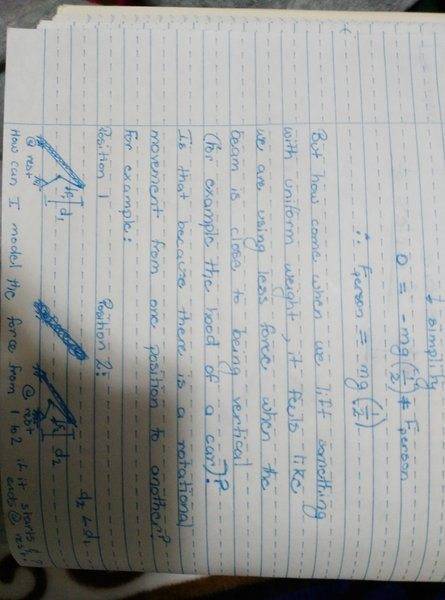 ↓ simplify
0 = -mg(1/2) + Fperson
∴ Fperson = mg(1/2)
But how come when we lift something
with uniform weight, it feels like
we are using less force when the
beam is close to being vertical
(for example the hood of a car)?
Is that because there is a rotational
movement from one position to another?
For example:
Position 1 Position 2:
d₁ d₂ d₂ < d₁
@ rest @ rest
How can I model the force from 1 to 2 if it starts &
ends @ rest?